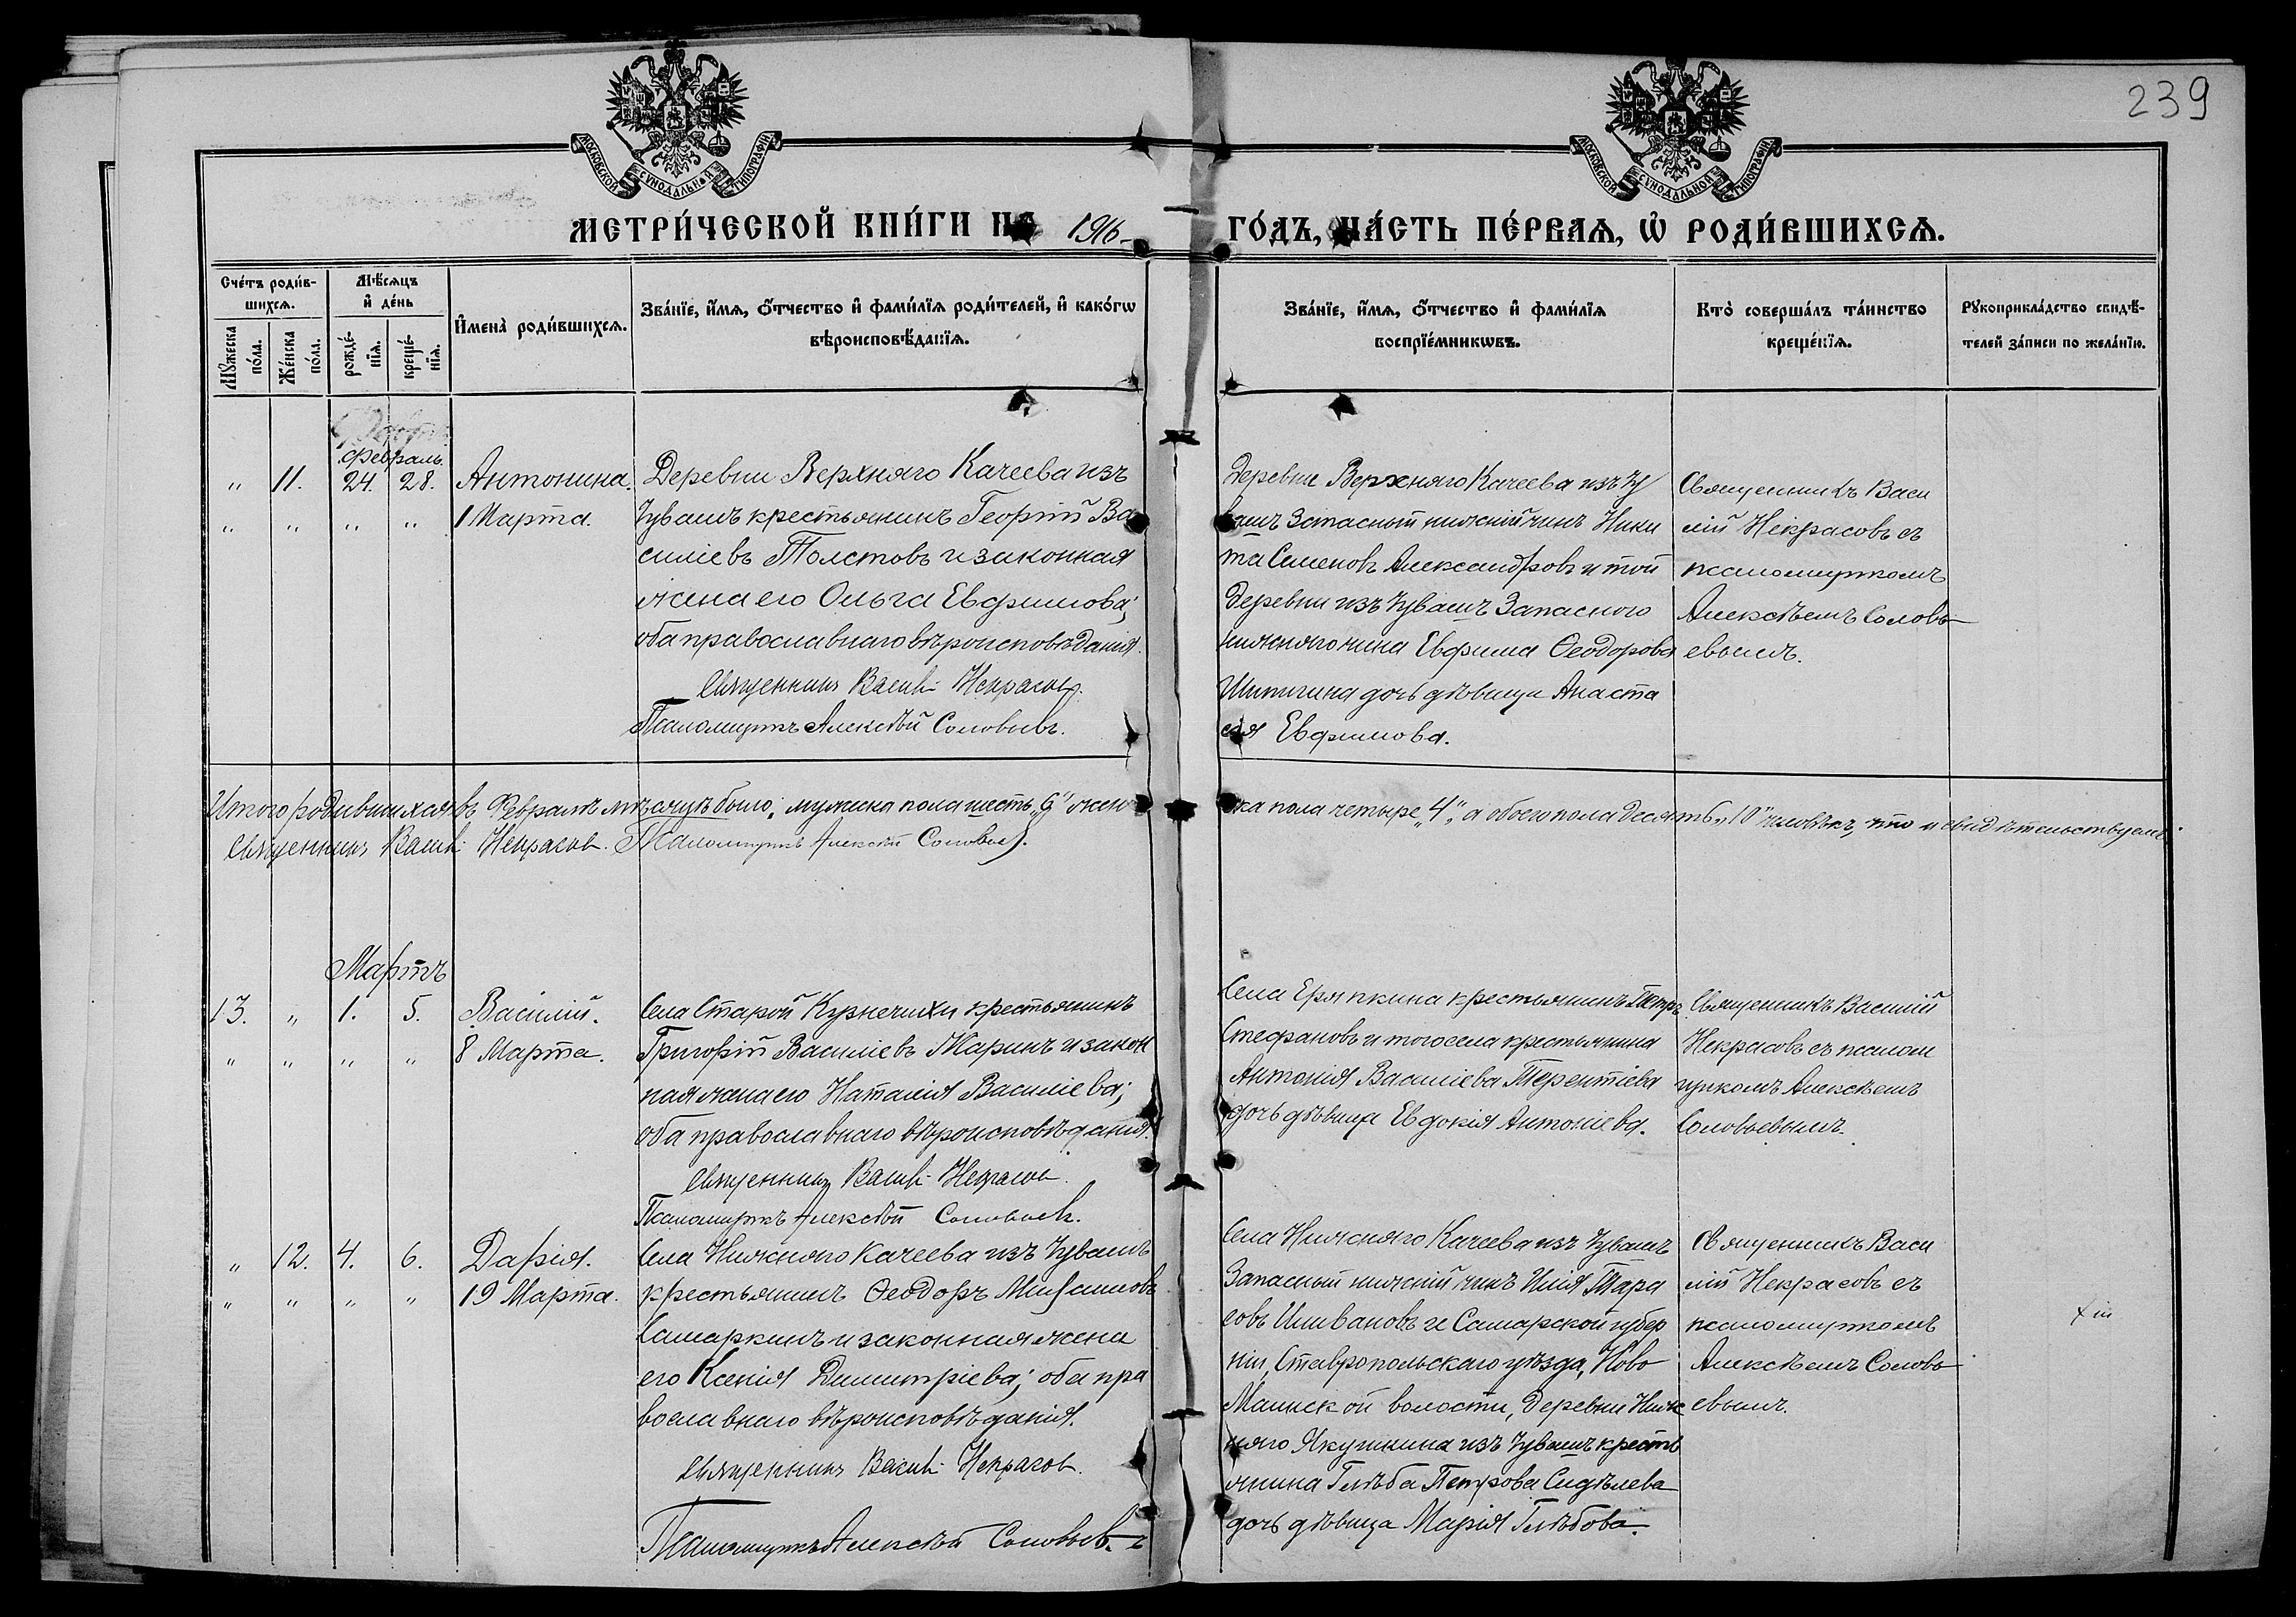 239
МОСКОВСКОЙ СУНОДАЛЬНОЙ ТИПОГРАФІИ
МОСКОВСКОЙ СУНОДАЛЬНОЙ ТИПОГРАФІИ
МЕТРИ́ЧЕСКОЙ КНИ́ГИ НА 1916
ГО́ДЪ, ЧА́СТЬ ПЕ́РВАЯ, Ѡ҆ РОДИ́ВШИХСЯ.
Сче́тъ роди́в-
шихся.
Мꙋ́жеска по́ла.
Же́нска по́ла.
Мѣ́сяцъ и҆ де́нь
рожде́-
нїя.
креще́-
нїя.
И҆мена̀ роди́вшихся.
Зва́нїе, и҆́мя, ѻ҆́тчество и҆ фами́лїя роди́телей, и҆ како́гѡ
вѣроисповѣ́данїя.
Зва́нїе, и҆́мя, ѻ҆́тчество и҆ фами́лїя
воспрїе́мникѡвъ.
Кто̀ соверша́лъ та́инство
креще́нїя.
Рꙋкоприкла́дство свидѣ́-
телей за́писи по жела́нїю.
Февраль.
„ 11. 24. 28. Антонина.
„ „ „ „ 1 Марта.
Деревни Верхняго Качеева изъ
Чувашъ крестьянинъ Георгій Ва
силіевъ Толстовъ и законная
жена его Ольга Евфимова;
оба православнаго вѣроисповѣданія.
Священникъ Василій Некрасовъ.
Псаломщикъ Алексѣй Соловьевъ.
Деревни Верхняго Качеева изъ Чу
вашъ Запасный нижній чинъ Ники
та Семеновъ Александровъ и той
деревни изъ Чувашъ Запасного
нижняго чина Евфима Ѳеодорова
дочь дѣвица Анаста
сія Евфимова.
Священникъ Васи
лій Некрасовъ съ
псаломщикомъ
Алексѣемъ Соловь
евымъ.
Итого родившихся въ Февралѣ мѣсяцѣ было: мужска пола шесть „6“ жен
ска пола четыре „4“, а обоего пола десять „10“ человѣкъ, что и свидѣтельствуемъ.
Священникъ Василій Некрасовъ. Псаломщикъ Алексѣй Соловьевъ.
Мартъ
13. „ 1. 5. Василій.
„ „ „ „ 8 Марта.
Села Старой Курнечихи крестьянинъ
Григорій Василіевъ Жаринъ и закон
ная жена его Наталія Василіева;
оба православнаго вѣроисповѣданія.
Священникъ Василій Некрасовъ.
Псаломщикъ Алексѣй Соловьевъ.
Села Еряпкина крестьянинъ Петръ
Стефановъ и того села крестьянина
Антонія Василіева Терентіева
дочь дѣвица Евдокія Антоніева.
Священникъ Василій
Некрасовъ съ псалом
щикомъ Алексѣемъ
Соловьевымъ.
„ 12. 4. 6. Дарія.
„ „ „ „ 19 Марта.
Села Нижняго Качеева изъ Чувашъ
крестьянинъ Ѳеодоръ Михаиловъ
Самаркинъ и законная жена
его Ксенія Димитріева; оба пра
вославнаго вѣроисповѣданія.
Священникъ Василій Некрасовъ.
Псаломщикъ Алексѣй Соловьевъ.
Села Нижняго Качеева изъ Чувашъ
Запасный нижній чинъ Илія Тара
совъ Ишвановъ и Самарской губер
ніи, Ставропольскаго уѣзда, Ново
Маинской волости, деревни Ниж
няго Якушкина изъ Чувашъ кресть
янина Глѣба Петрова Сидѣлева
дочь дѣвица Марія Глѣбова.
Священникъ Васи
лій Некрасовъ съ
псаломщикомъ
Алексѣемъ Соловь
евымъ.